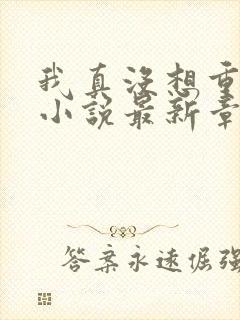 我真没想重
小说最新章
答案永远倔强